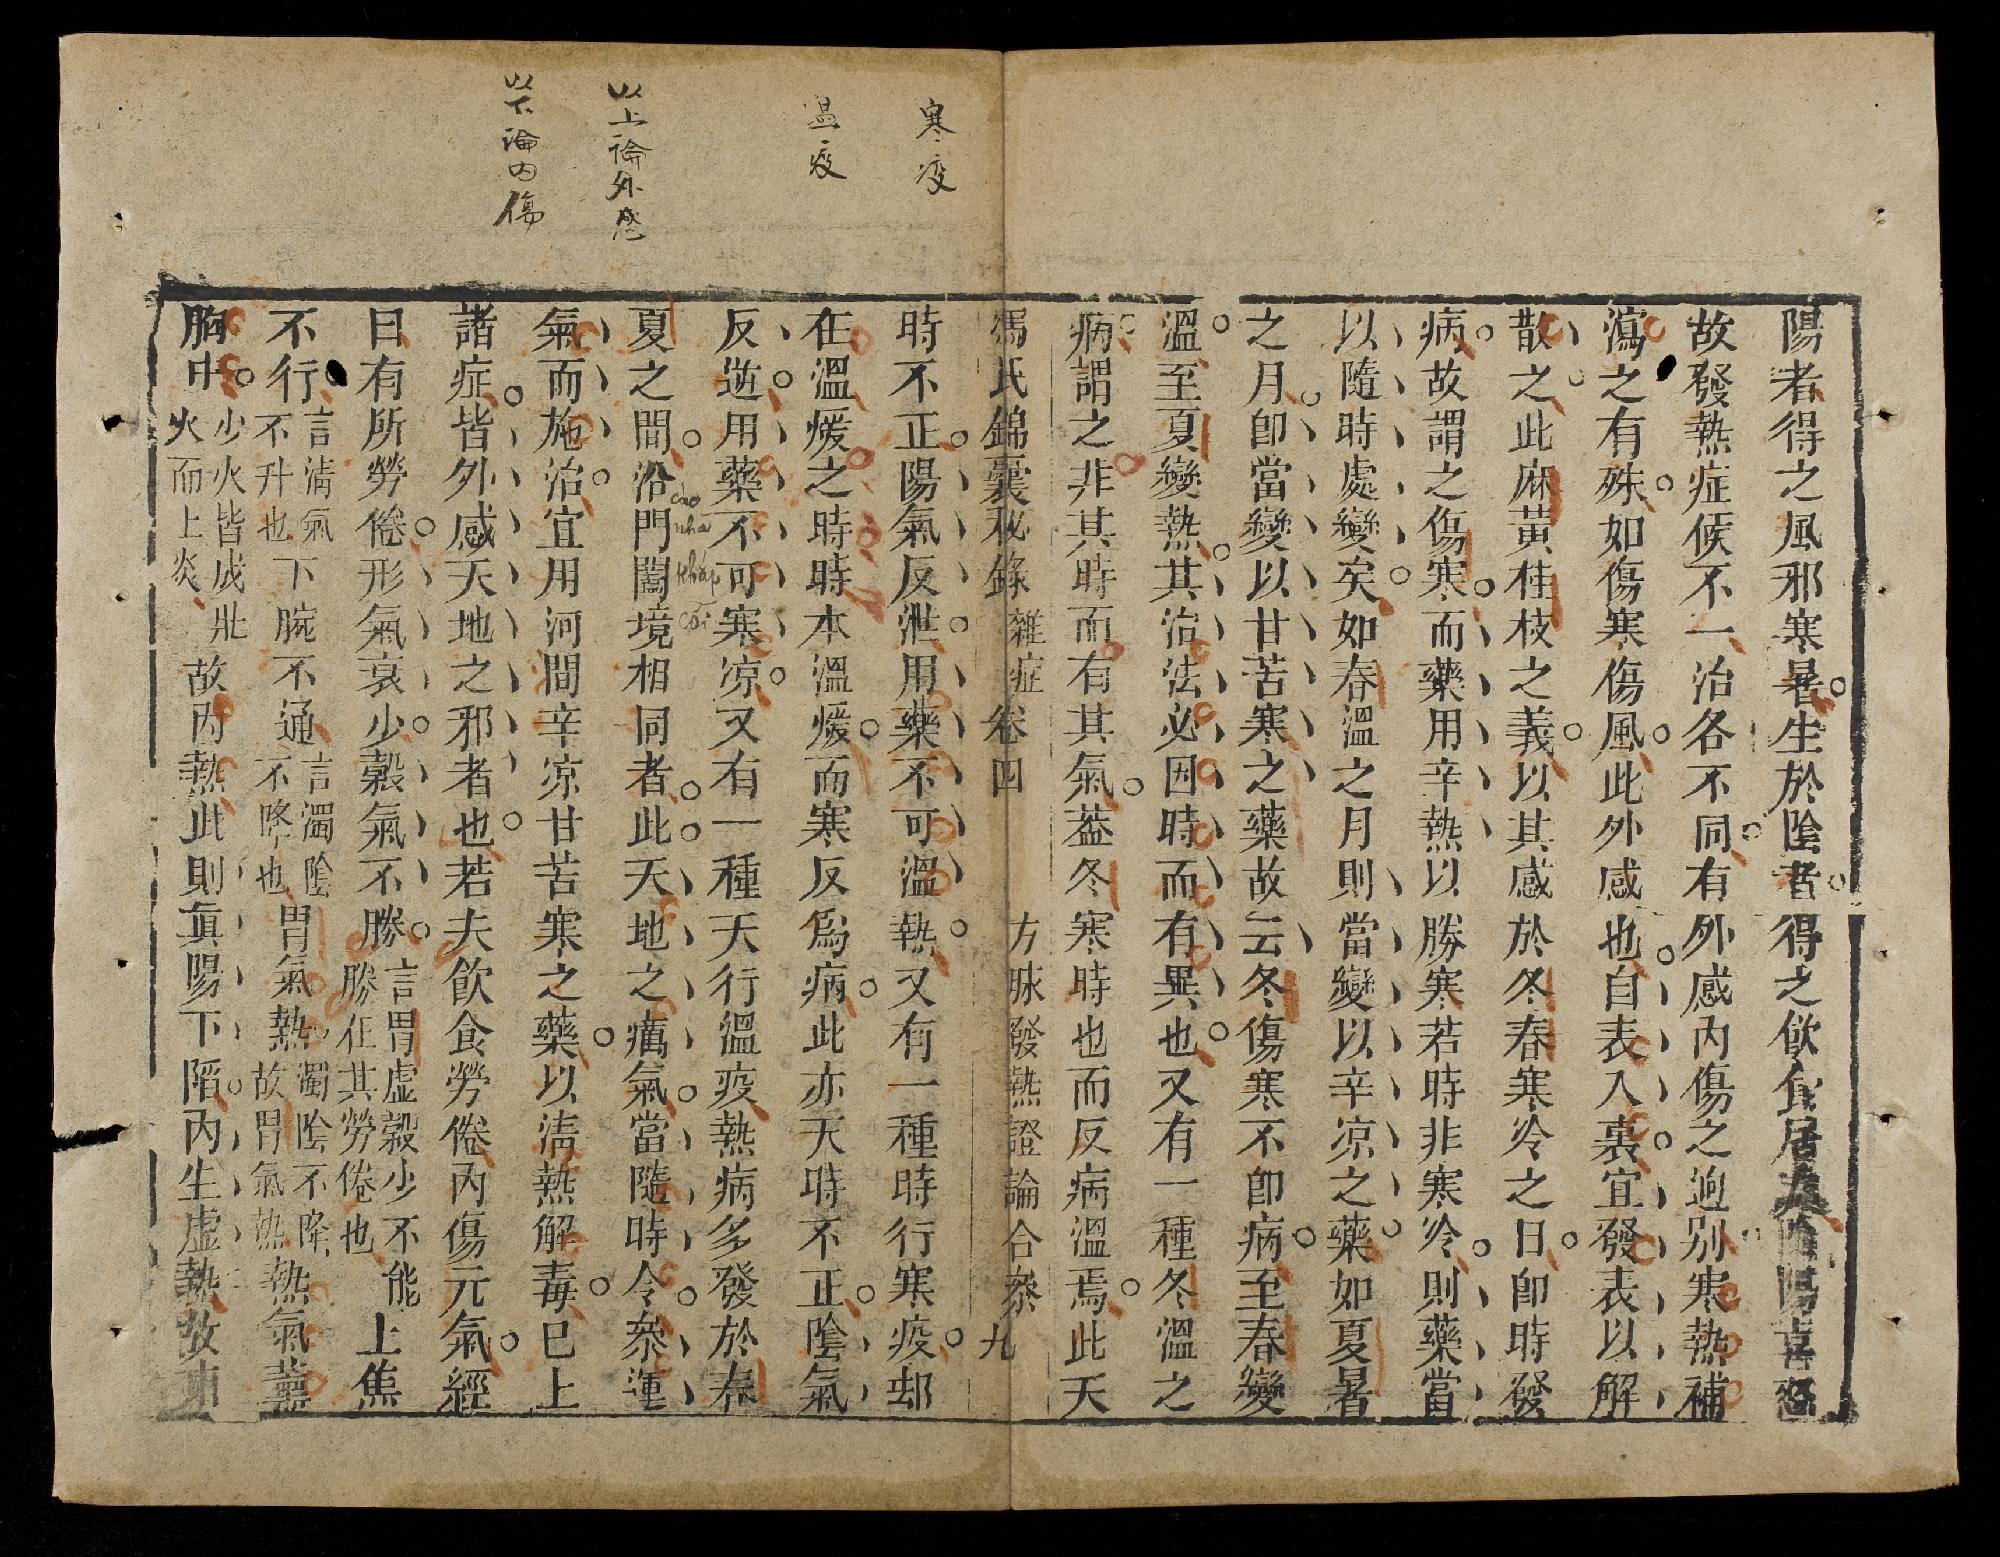 寒疫
温疫
以上論外感
以下論內傷
陽者得之風邪寒暑生於陰者得之飲食居處陰陽喜怒
故發熱症候不一治各不同有外感內傷之逈別寒熱補
瀉之有殊如傷寒傷風此外感也自表入裏宜發表以解
散之此麻黃桂枝之義以其感於冬春寒冷之日即時發
病故謂之傷寒而藥用辛熱以勝寒若時非寒冷則藥當
以隨時處變矣如春溫之月則當變以辛凉之藥如夏暑
之月即當變以甘苦寒之藥故云冬傷寒不即病至春變
溫至夏變熱其治法必因時而有異也又有一種冬溫之
病謂之非其時而有其氣葢冬寒時也而反病溫焉此天
馮氏錦囊秘錄 雜症 卷四 方脉發熱證論合叅 九
時不正陽氣反泄用藥不可溫熱又有一種時行寒疫却
在溫煖之時時本溫煖而寒反爲病此亦天時不正陰氣
反逆用藥不可寒凉又有一種天行溫疫熱病多發於春
夏之間沿門闔境相同者此天地之癘氣當隨時令叅運
các nhà khắp cõi
氣而施治宜用河間辛凉甘苦寒之藥以清熱解毒已上
諸症皆外感天地之邪者也若夫飲食勞倦內傷元氣經
曰有所勞倦形氣衰少穀氣不勝言胃虛穀少不能勝任其勞倦也上焦
不行言清氣不升也下脘不通言濁陰不降也胃氣熱濁陰不降故胃氣熱熱氣薰
胸中少火皆成壯火而上炎故內熱此則眞陽下陷內生虛熱故東